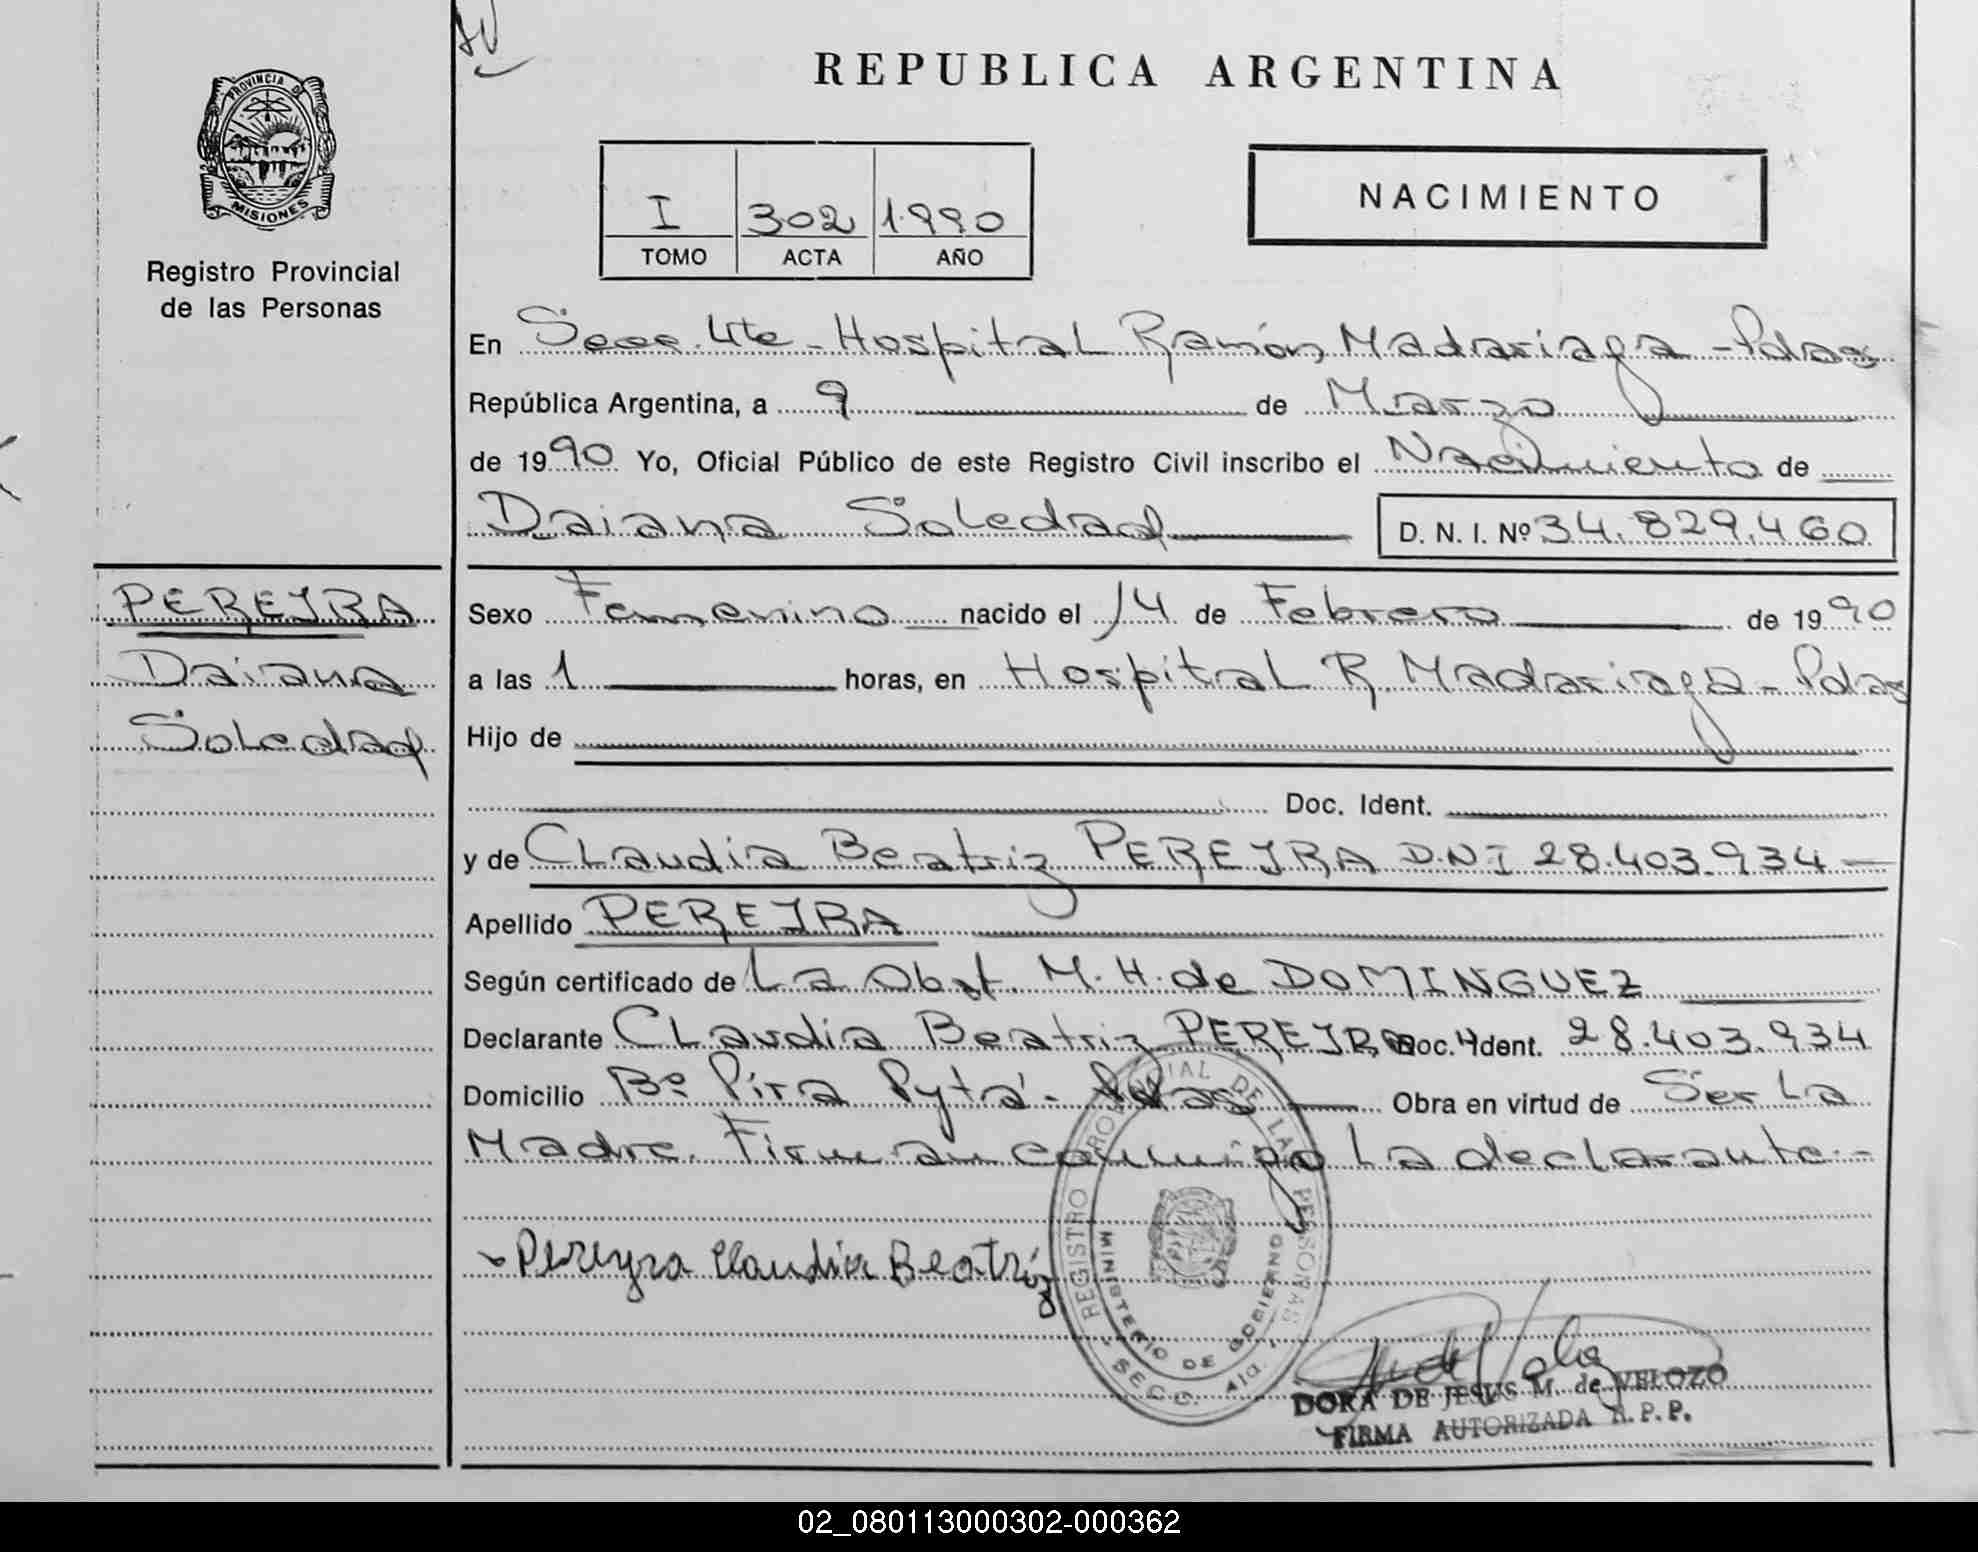 REPUBLICA ARGENTINA
PROVINCIA DE
MISIONES
Registro Provincial
de las Personas
I 302 1990
TOMO ACTA AÑO
NACIMIENTO
En Secc. 4te - Hospital Ramón Madariaga - Pdas
República Argentina, a 9 de Marzo
de 1990 Yo, Oficial Público de este Registro Civil inscribo el Nacimiento de
Daiana Soledad D. N. I. Nº 34.829.460
PEREJRA
Daiana
Soledad
Sexo Femenino nacido el 14 de Febrero de 1990
a las 1 horas, en Hospital R. Madariaga - Pdas
Hijo de
Doc. Ident.
y de Claudia Beatriz PEREJRA D.N.I 28.403.934 -
Apellido PEREJRA
Según certificado de La Obst. M. H. de DOMINGUEZ
Declarante Claudia Beatriz PEREJRA Doc. Ident. 28.403.934
Domicilio Bº Pira Pytá - Pdas Obra en virtud de Ser La
Madre. Firman conmigo La declarante.-
Pereyra Claudia Beatríz
REGISTRO PROVINCIAL DE LAS PERSONAS
MINISTERIO DE GOBIERNO
SECC. 4ta.
DORA DE JESUS M. de VELOZO
FIRMA AUTORIZADA R.P.P.
02_080113000302-000362